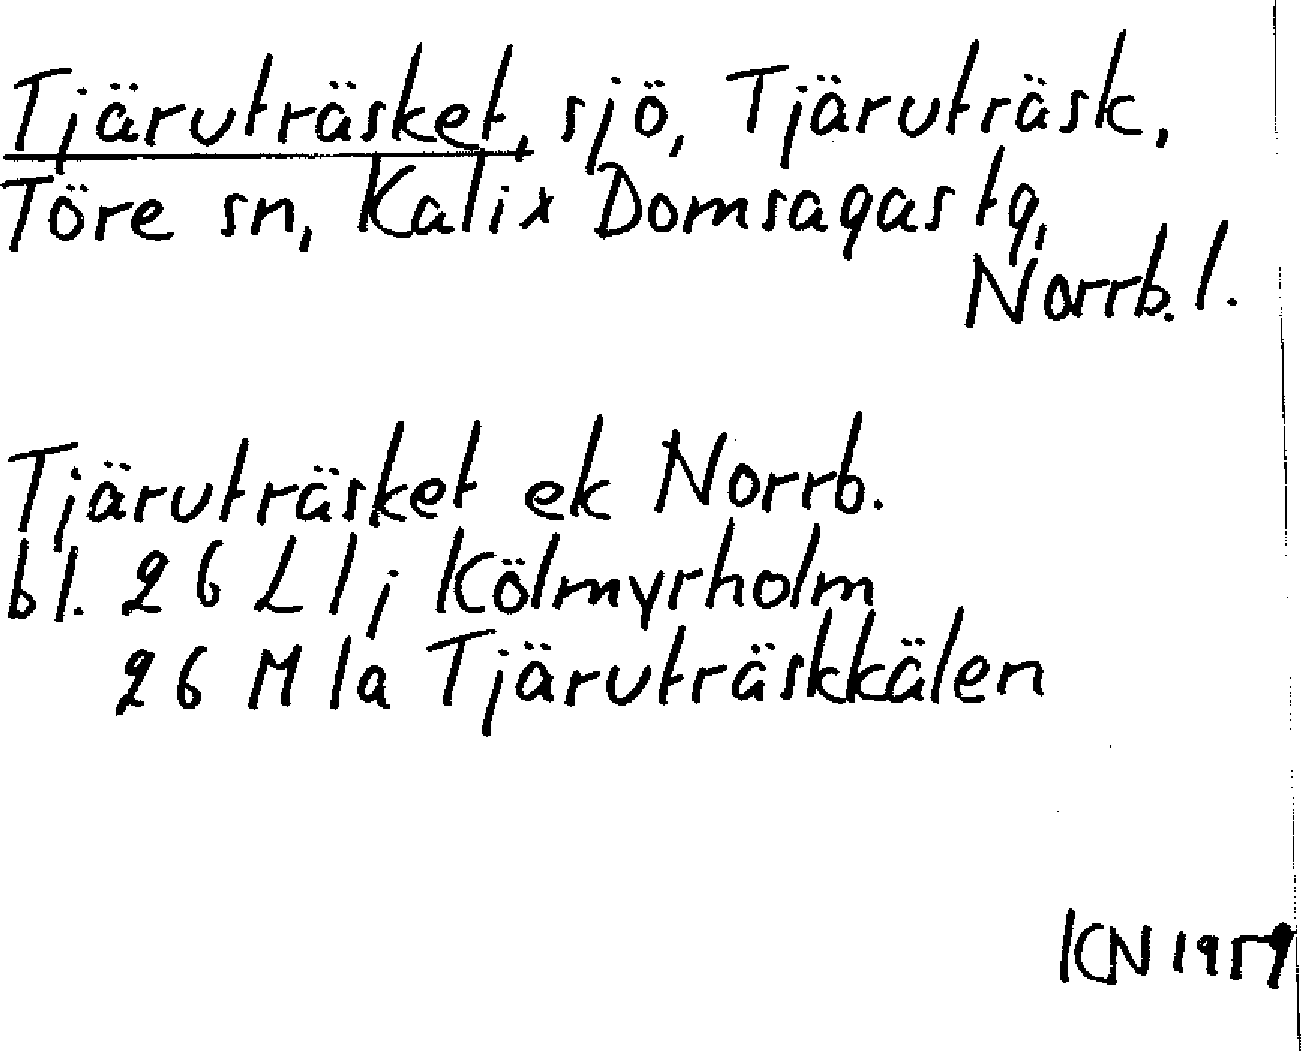 Tjäruträsket, sjö, Tjäruträsk,
Töre sn, Kalix Domsagas tg,
Norrb. l.
Tjäruträsket ek Norrb.
bl. 26 L 1 j Kölmyrholm
26 M 1a Tjäruträskkälen
KN 1959